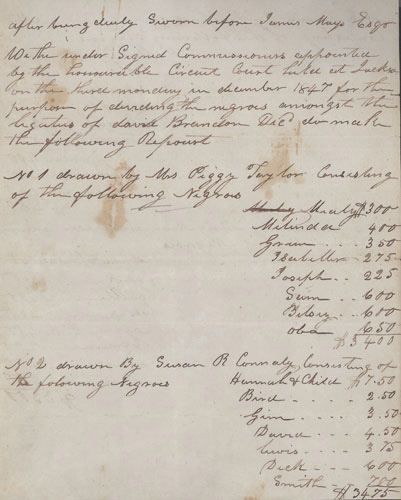 after being duly Sworn before James Mays Esqr
We the under Signed Commissioners appointed
by the honourable Circuit Court held at Jackson
on the third monday in december 1847 for the
purpose of deviding the negroes amongst the
legatus of david Brandon Decd do make
the following Repourt
No 1 drawn by Mrs Piggy Taylor Consisting
of the following Negroes
Mealy $300
Milinda 400
Green . . . 350
Isabella . . 275
Joseph . . . 225
Sam . . 600
Bitsey . . 600
oba 650
$3400
No 2 drawn By Susan R Connaly Consisting of
the folowing Negroes
Hannah & Child $7.50
Bird . . . . 2.50
Gim . . . . 3.50
David . . . 4.50
Lewis . . . . 3 75
Dick . . . 600
Smith . . . 700
$3475